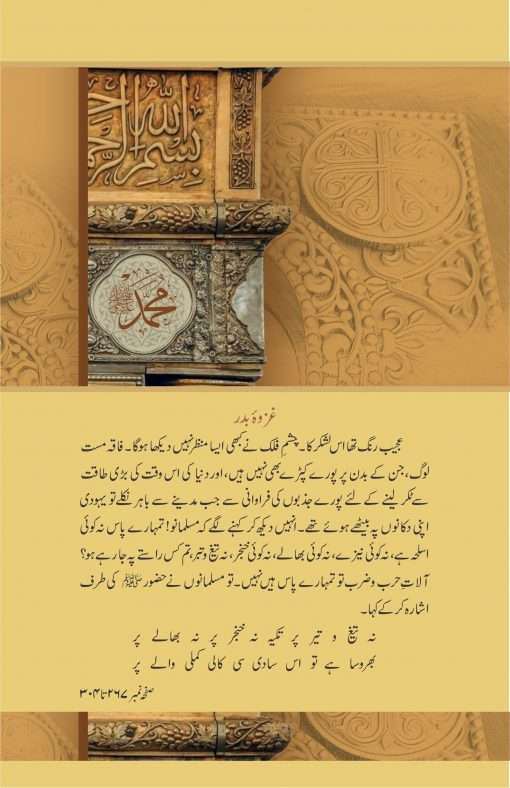 بسم الله الرحم
محمد ﷺ
غزوۂ بدر
عجیب رنگ تھا اس لشکر کا۔ چشمِ فلک نے کبھی ایسا منظر نہیں دیکھا ہوگا۔ فاقہ مست
لوگ، جن کے بدن پر پورے کپڑے بھی نہیں ہیں، اور دنیا کی اس وقت کی بڑی طاقت
سے ٹکر لینے کے لئے پورے جذبوں کی فراوانی سے جب مدینے سے باہر نکلے تو یہودی
اپنی دکانوں پہ بیٹھے ہوئے تھے۔ انہیں دیکھ کر کہنے لگے کہ مسلمانو! تمہارے پاس نہ کوئی
اسلحہ ہے، نہ کوئی نیزے، نہ کوئی بھالے، نہ کوئی خنجر، نہ تیغ و تبر، تم کس راستے پہ جا رہے ہو؟
آلاتِ حرب و ضرب تو تمہارے پاس ہیں نہیں۔ تو مسلمانوں نے حضور ﷺ کی طرف
اشارہ کر کے کہا۔
نہ تیغ و تیر پر تکیہ نہ خنجر پر نہ بھالے پر
بھروسا ہے تو اس سادی سی کالی کملی والے پر
صفحہ نمبر ۲۶۷ تا ۳۰۴